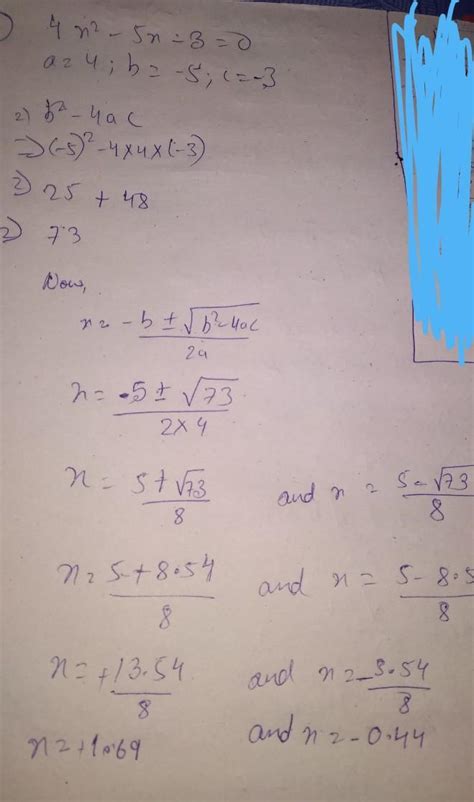 4x² - 5x - 3 = 0
a = 4 ; b = -5 ; c = -3
⇒ b² - 4ac
⇒ (-5)² - 4×4×(-3)
⇒ 25 + 48
⇒ 73
Now,
x = -b ± √b²-4ac / 2a
x = -5 ± √73 / 2×4
x = 5 + √73 / 8 and x = 5 - √73 / 8
x = 5 + 8.54 / 8 and x = 5 - 8.5 / 8
x = +13.54 / 8 and x = -3.54 / 8
x = +1.69 and x = -0.44